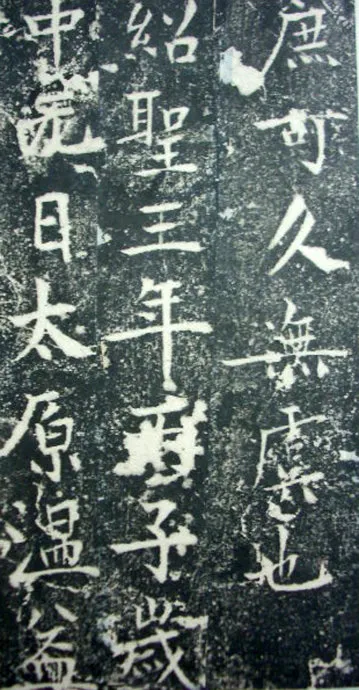 庶可久無虞也
紹聖三年丙子歲
中元日太原温益